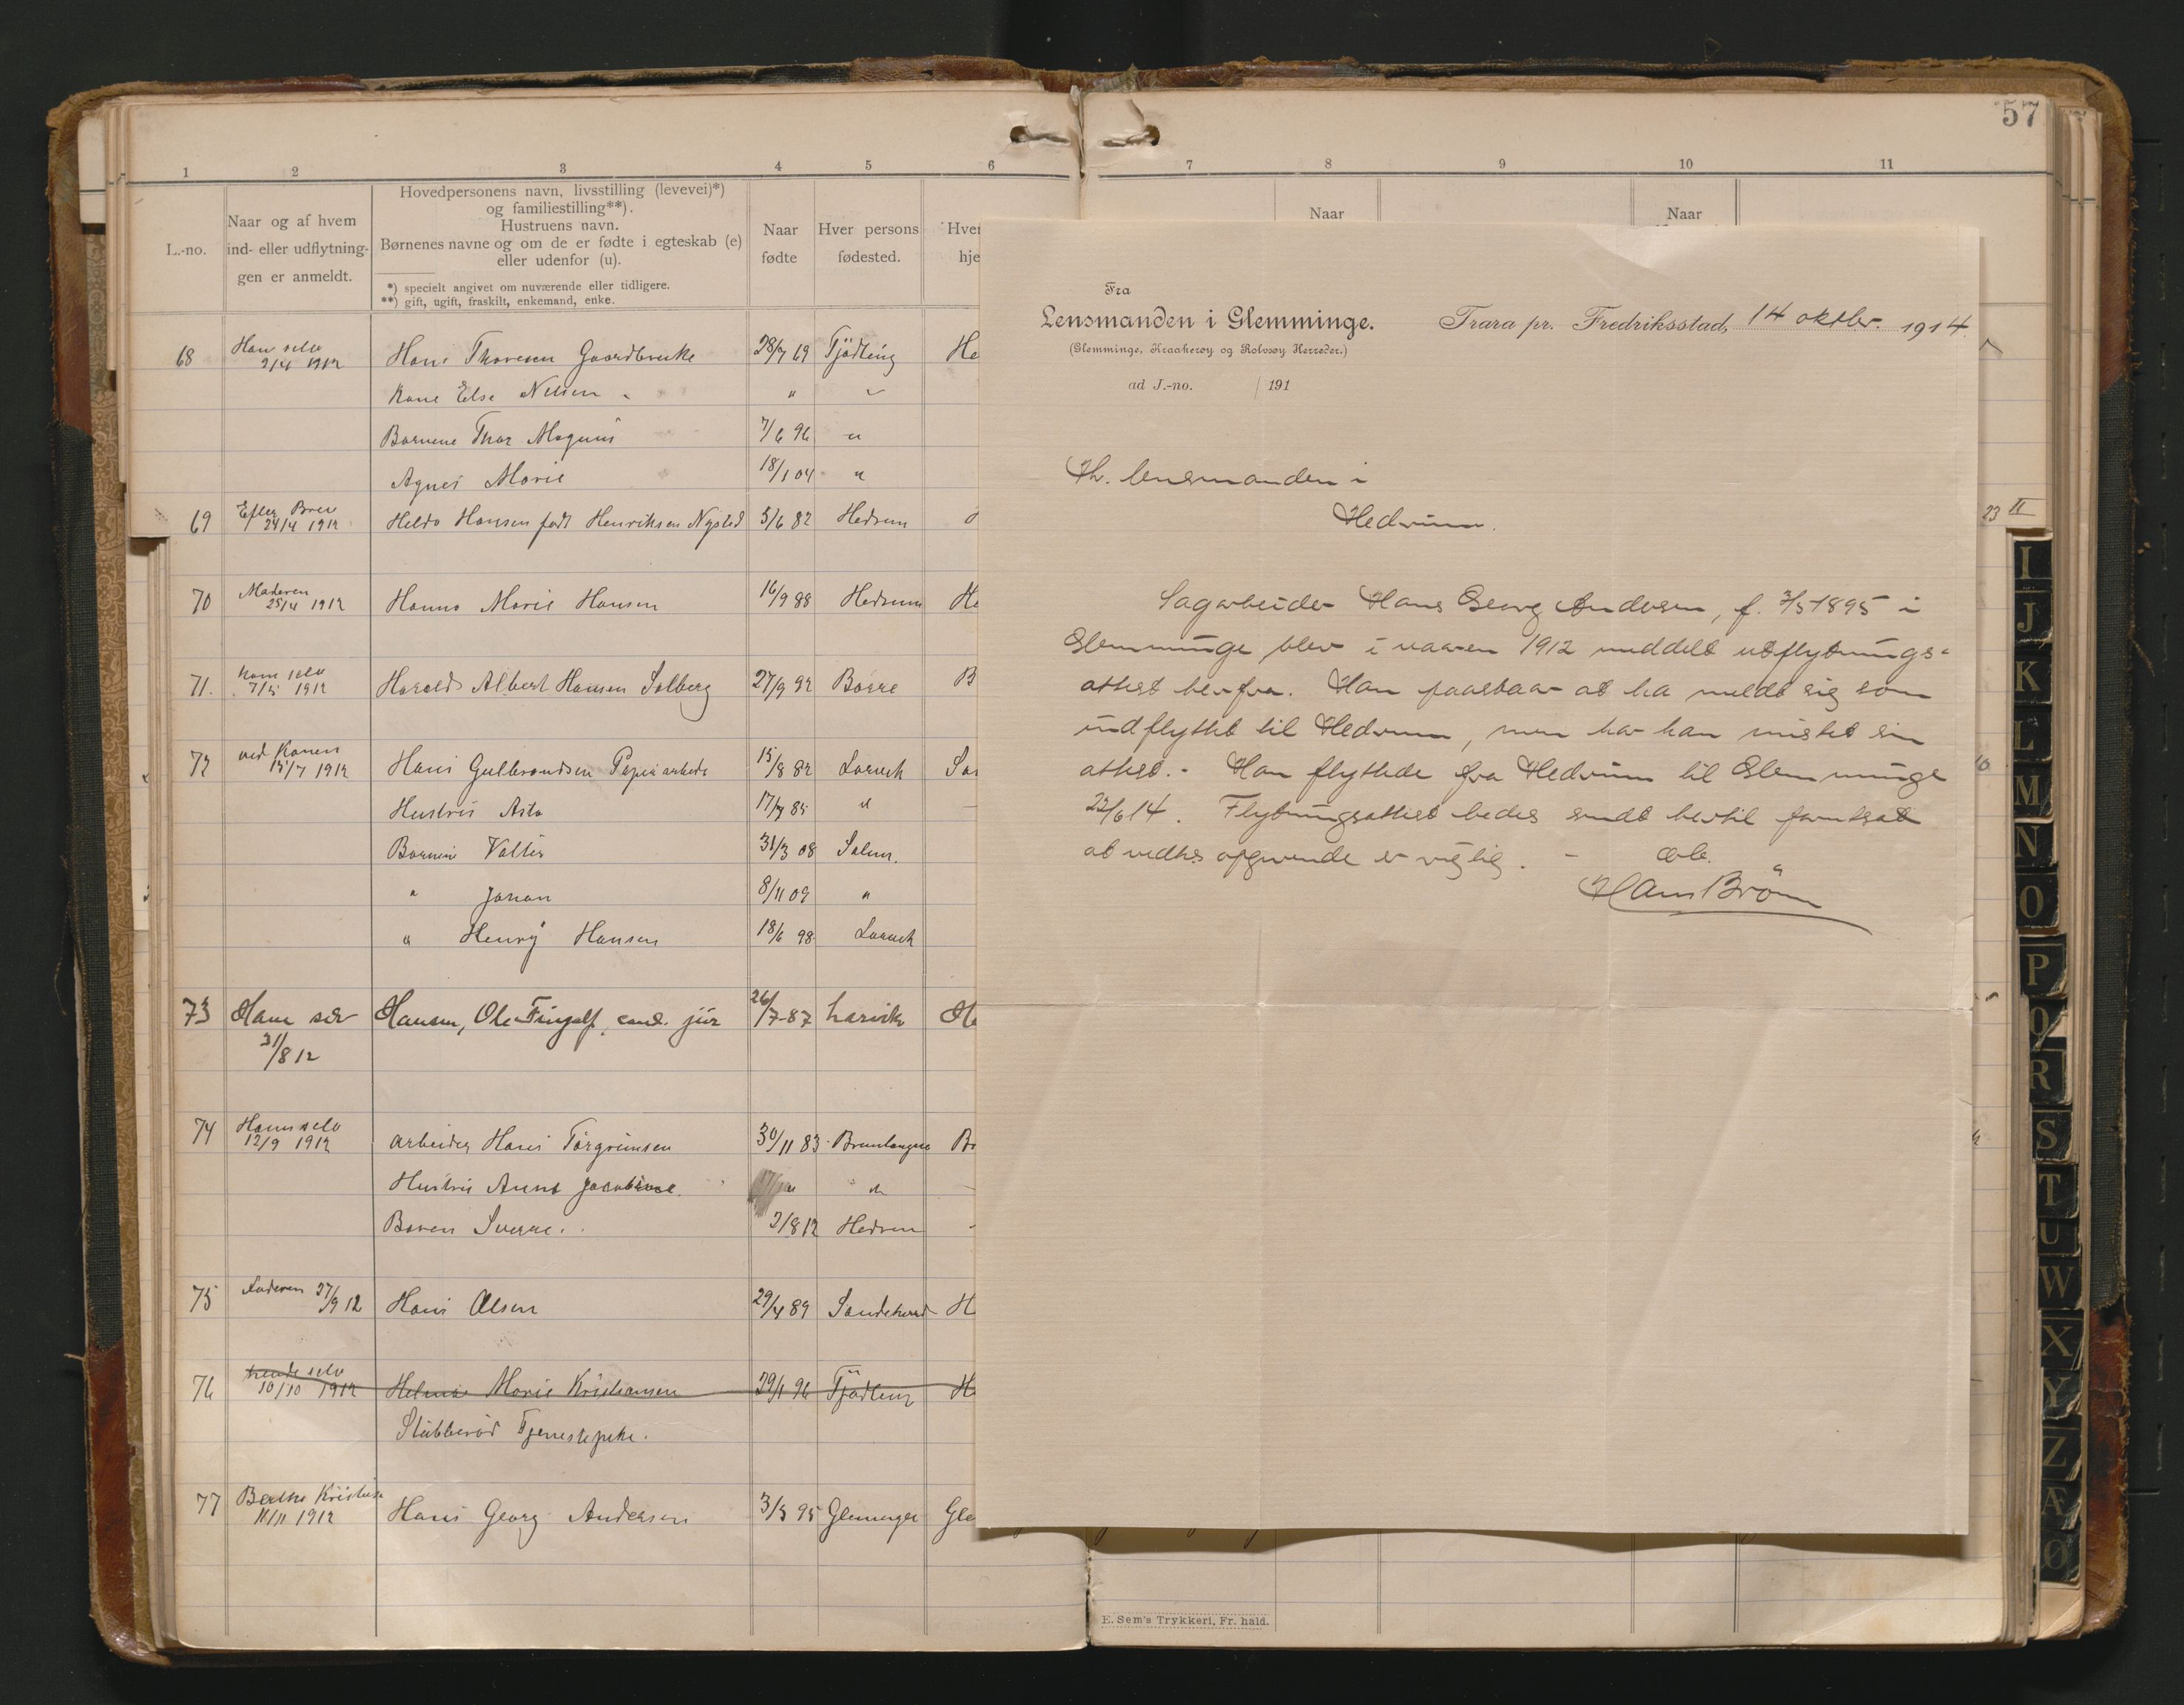 57
1 2 3 4 5 6
L.-no.
Naar og af hvem
ind- eller udflytnin-
gen er anmeldt.
Hovedpersonens navn, livsstilling (levevei)*)
og familiestilling**).
Hustruens navn.
Børnenes navne og om de er fødte i egteskab (e)
eller udenfor (u).
*) specielt angivet om nuværende eller tidligere.
**) gift, ugift, fraskilt, enkemand, enke.
Naar
fødte
Hver persons
fødested.
Hver
hje
68 Han selv Hans Thoresen Gaardbruker 28/7 69 Tjødling He
9/4 1912
Kone Else Nilsen " "
Børnene Thor Magnus 7/6 96 "
Agnes Marie 18/1 04 "
69 Efter Brev Helda Hansen født Henriksen Nysted 5/6 82 Hedrum
24/4 1912
70 Moderen Hanna Marie Hansen 16/9 88 Hedrum He
25/4 1912
71. ham selv Harald Albert Hansen Solberg 27/9 92 Borre B
7/5 1912
72 ved Konen Hans Gulbrandsen Papirarbeide 15/8 82 Larvik
15/7 1912
Hustru Asta 17/7 85 "
Børnene Valter 31/3 08
" Johan 8/11 09 "
" Henry Hansen 18/6 98 Larvik
73 Ham selv Hansen, Ole Fingalf, cand. jur 26/7-87 Larvik He
31/8 12
74 Ham selv arbeider Hans Torgrimsen 30/11 83 Brunlangnes Br
12/9 1912
Hustru Anna Jacobine. " "
Barnet Sverre. 2/8 12 Hedrum
75 27/9 12 Hans Olsen 29/4 89 Sandeherred H
76 hende selv Helma Marie Kristiansen 29/1 96 Tjødling H
10/10 1912
Stubberød Tjenestepike.
77 Berthe Kristiansen Hans Georg Andersen 3/5 95 Glemminge Gle
11/11 1912
7 8 9 10 11
Naar
Naar
Fra
Lensmanden i Glemminge.
(Glemminge, Kraakerøy og Rolvsøy Herreder.)
Trara pr. Fredriksstad, 14 oktbr. 1914.
ad J.-no. / 191
Hr. lensmanden i
Hedrum.
Sagarbeider Hans Georg Andersen, f. 3/5 1895 i
Glemminge blev i vaaren 1912 meddelt utflytnings-
attest herfra. Han paastaar at ha meldt sig som
indflyttet til Hedrum, men har han mistet sin
attest. - Han flyttede fra Hedrum til Glemminge
23/6 14. Flytningsattest bedes sendt hertil forutsat
at vedk.s opgivende er rigtig. - Ærb.
Hans Brøm
23 II
10
I
J
K
L
M
N
O
P
Q
R
S
T
U
W
X
Y
Z
Æ
Ø
E. Sem's Trykkeri, Fr. hald.